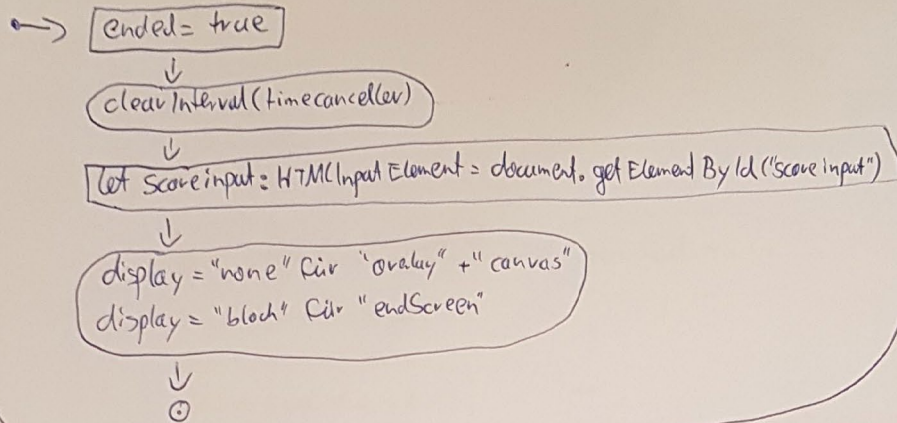 ended= true
clearInterval(timecanceller)
let scoreinput: HTMLInputElement = document.getElementById("scoreinput")
display = "none" für "ovalay" + "canvas"
display = "block" für "endScreen"